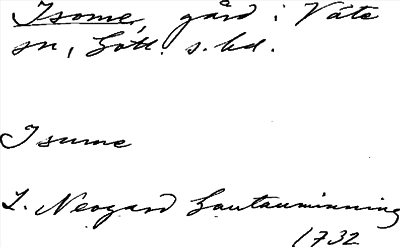 Isome, gård i Väte
sn, Gotl. s. hd.
Isume
L. Neogard Gautauminning
1732